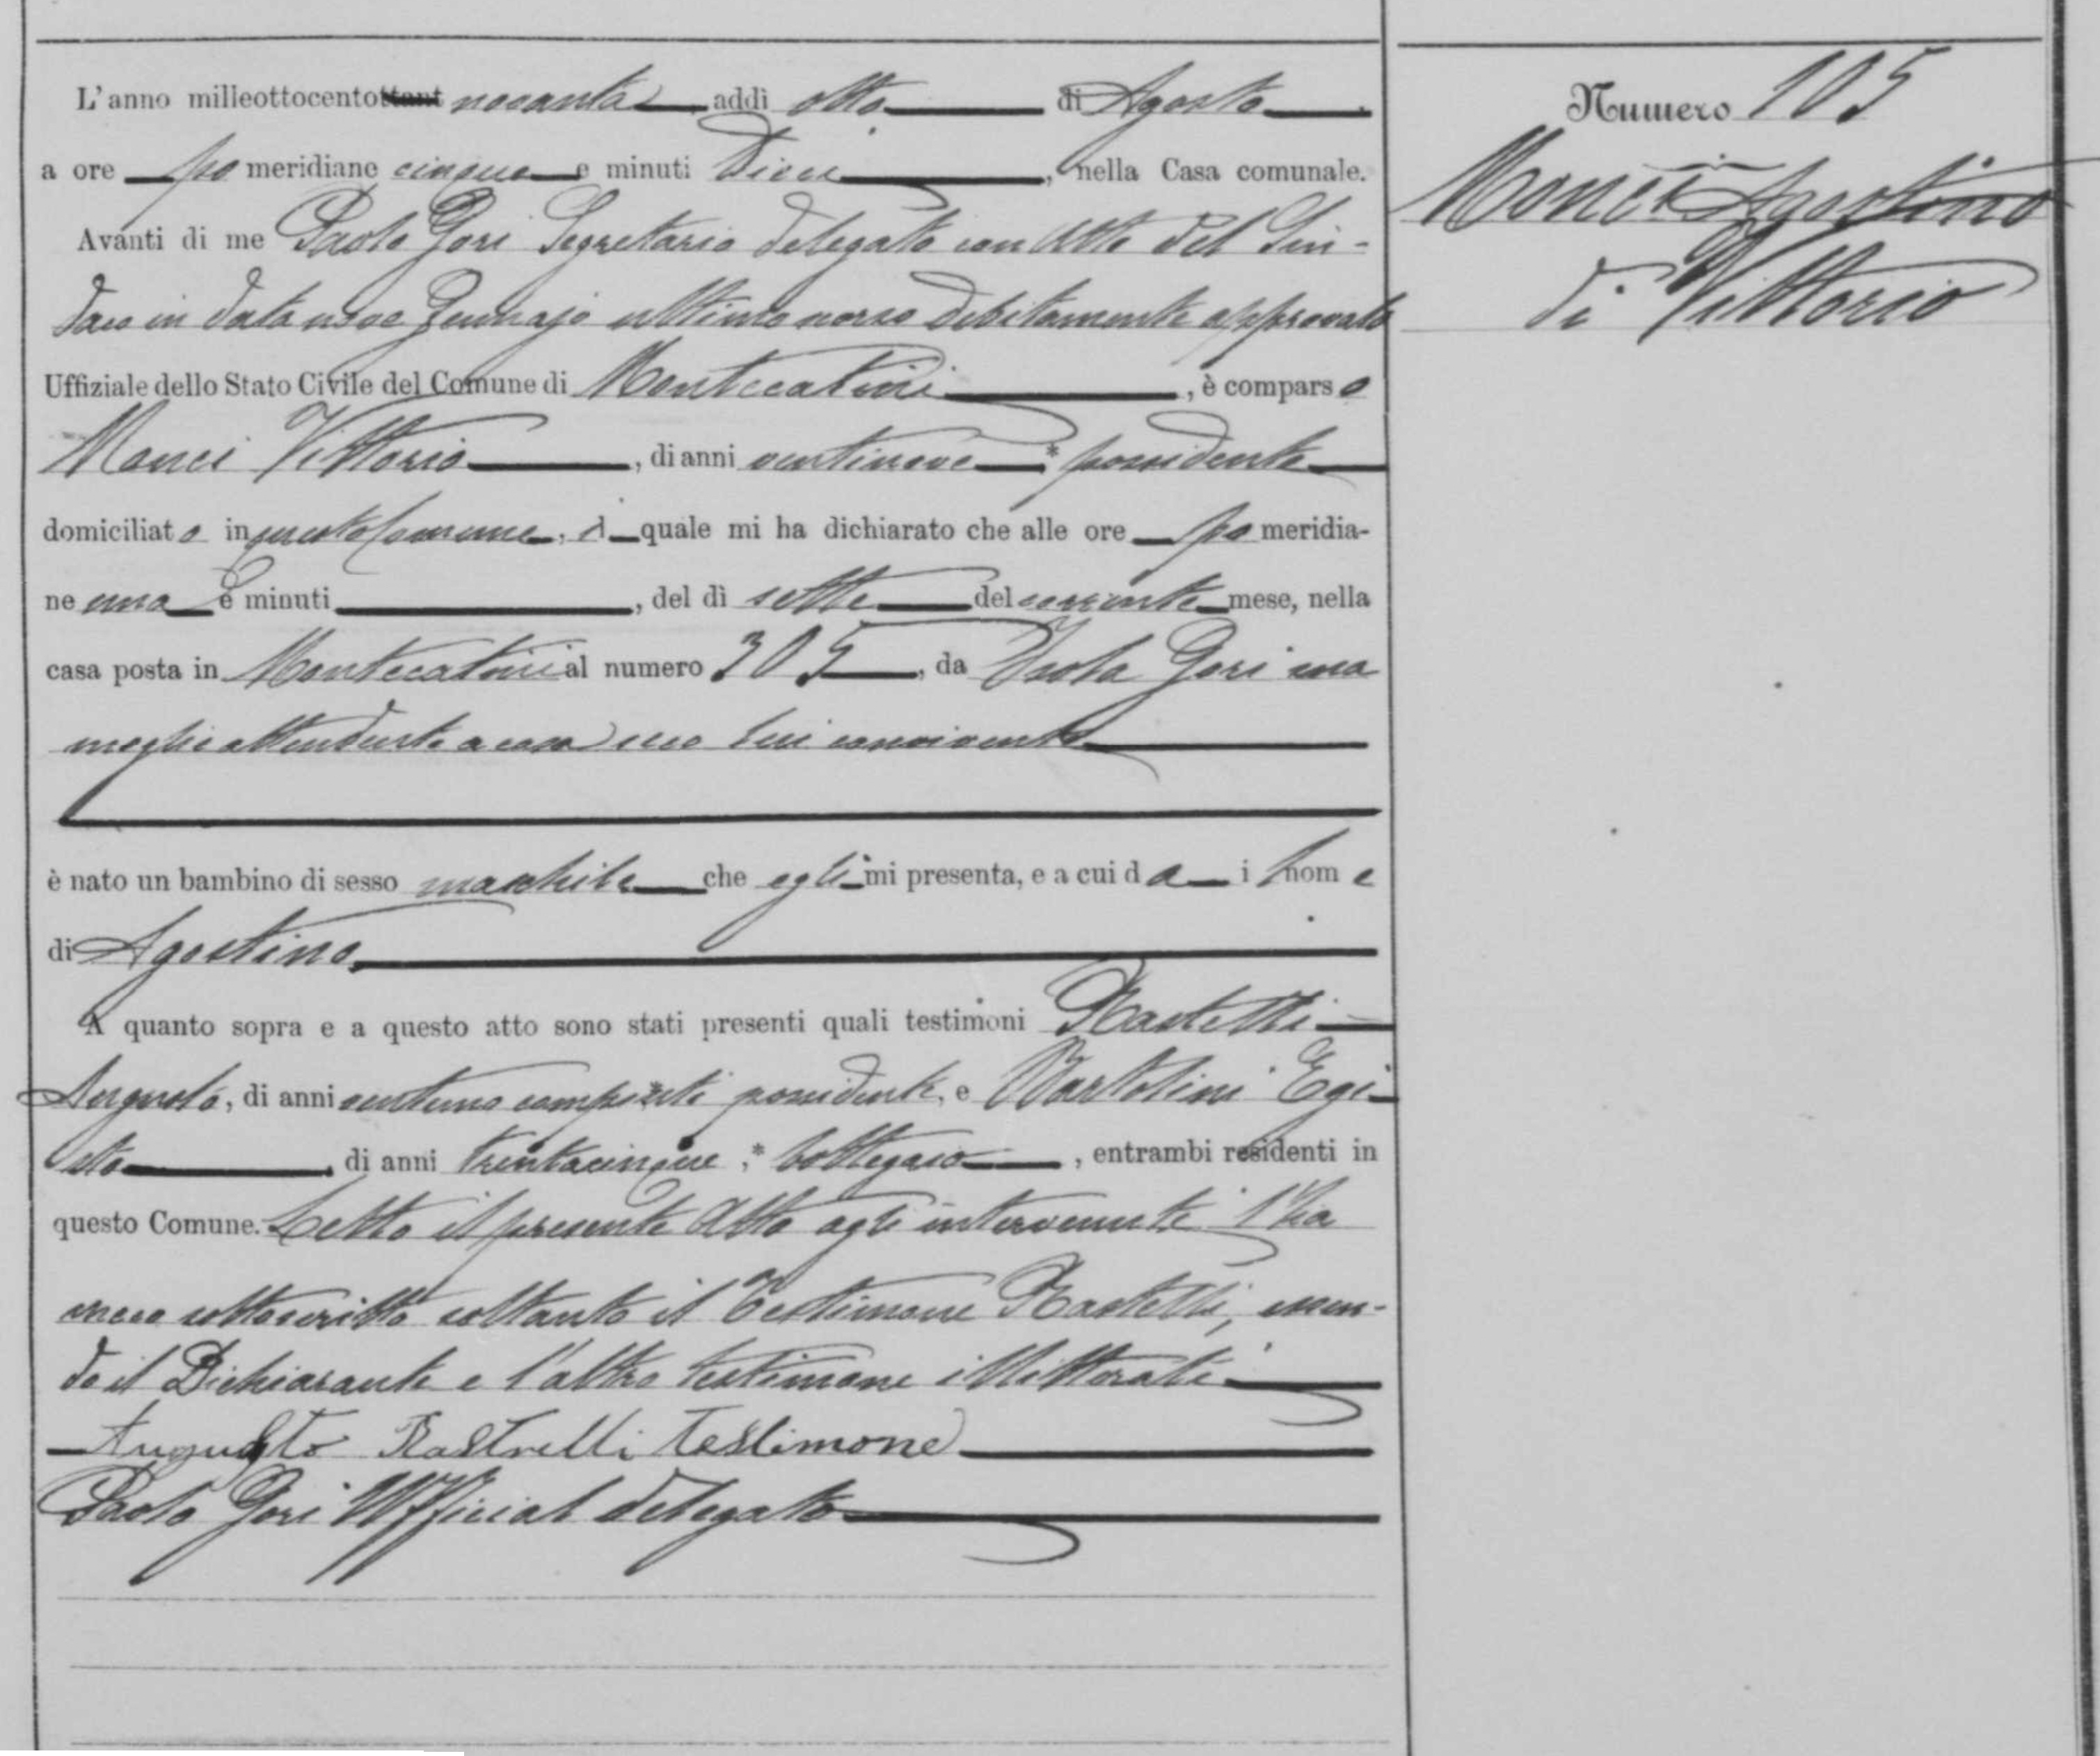 L'anno milleottocentottant novanta, addì otto di Agosto
a ore po meridiane cinque e minuti Dieci, nella Casa comunale.
Avanti di me Paolo Gori Segretario delegato con Atto del Sin-
daco in data nove Gennajo ultimo scorso debitamente approvato
Uffiziale dello Stato Civile del Comune di Montecatini, è comparso
Monci Vittorio, di anni ventinove * possidente
domiciliato in questo Comune, il quale mi ha dichiarato che alle ore po meridia-
ne una e minuti, del dì sette del corrente mese, nella
casa posta in Montecatini al numero 305, da Isola Gori sua
moglie attendente a casa seco lui convivente
è nato un bambino di sesso maschile che egli mi presenta, e a cui dà il nome
di Agostino
A quanto sopra e a questo atto sono stati presenti quali testimoni Rastelli
Augusto, di anni ventuno compiuti possidente, e Bartolini Egi-
sto di anni trentacinque, * bottegaio, entrambi residenti in
questo Comune. Letto il presente Atto agli intervenuti l'ha
meco sottoscritto soltanto il Testimone Rastelli, essen-
do il Dichiarante e l'altro testimone illetterati
Augusto Rastrelli testimone
Paolo Gori Uffizial delegato
Numero 105
Monci Agostino
di Vittorio